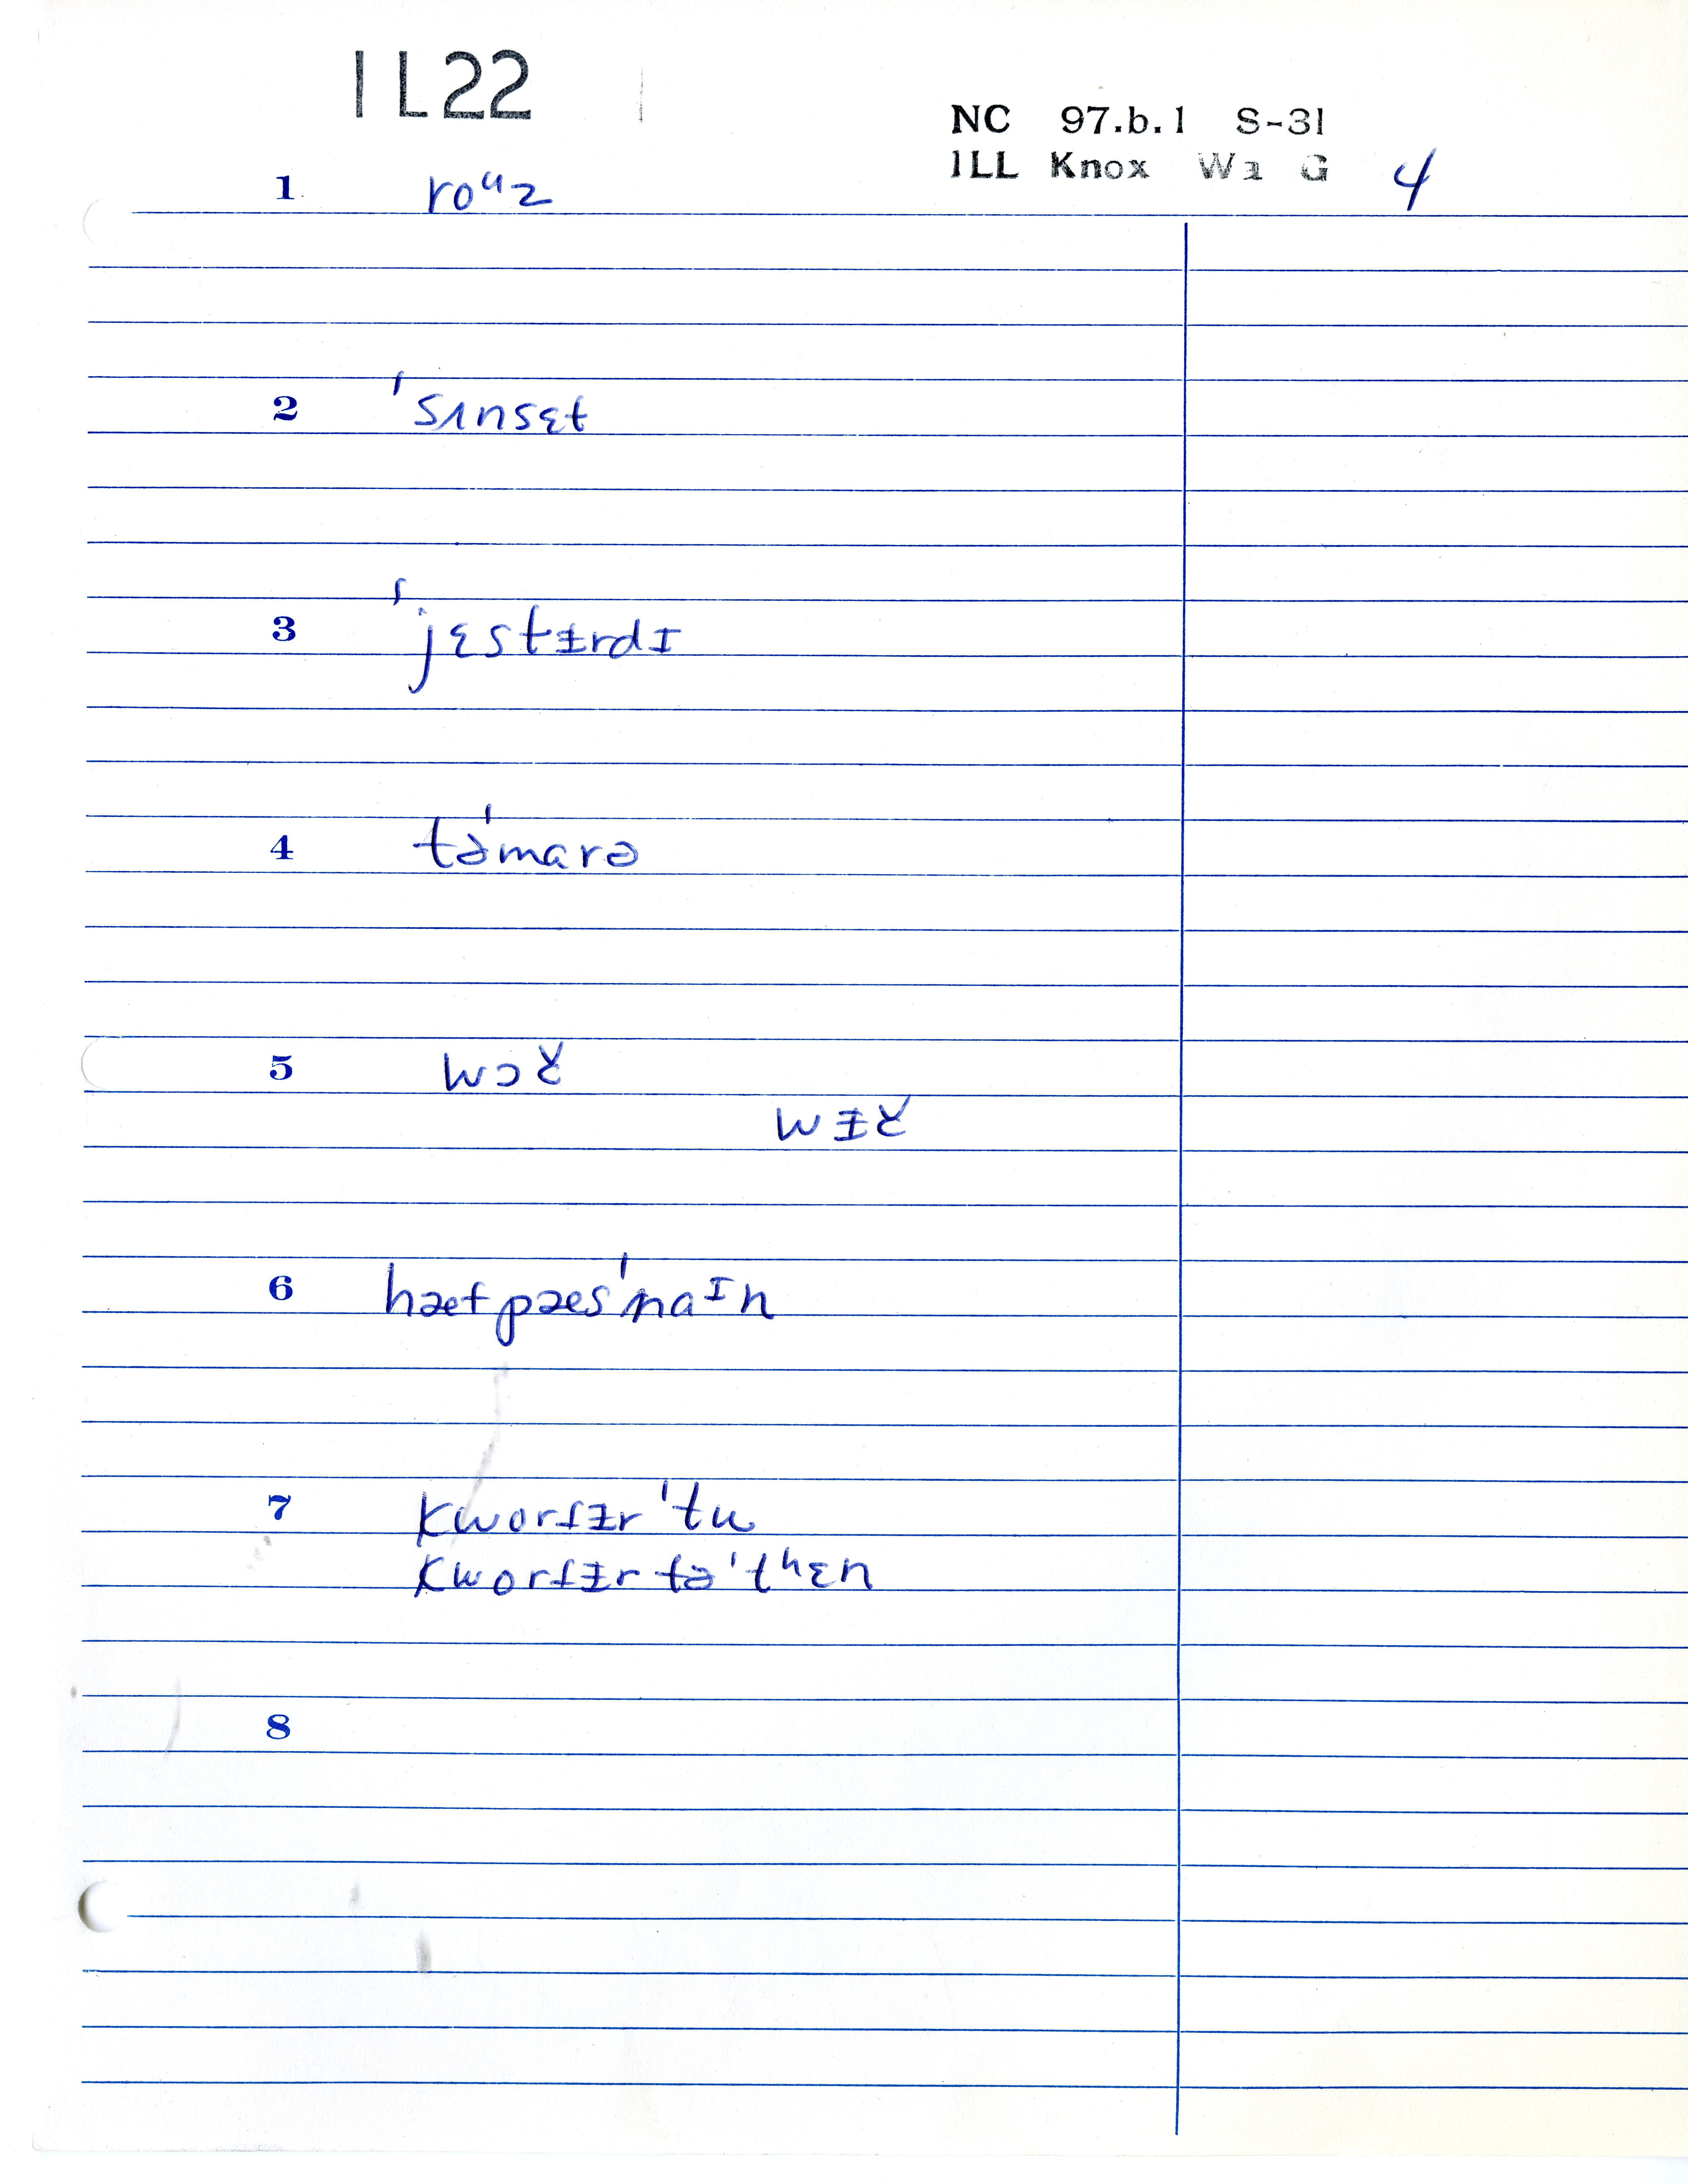 IL22
NC 97.b.1 S-31
ILL Knox Wa G 4
1 roᵘz
2 ˈsʌnsɛt
3 ˈjɛstɨrdɪ
4 təˈmarə
5 wɔɚ
wɨɚ
6 hæf pæsˈnaᴵn
7 kworɾɨr ˈtu
kworɾɨr təˈtʰɛn
8